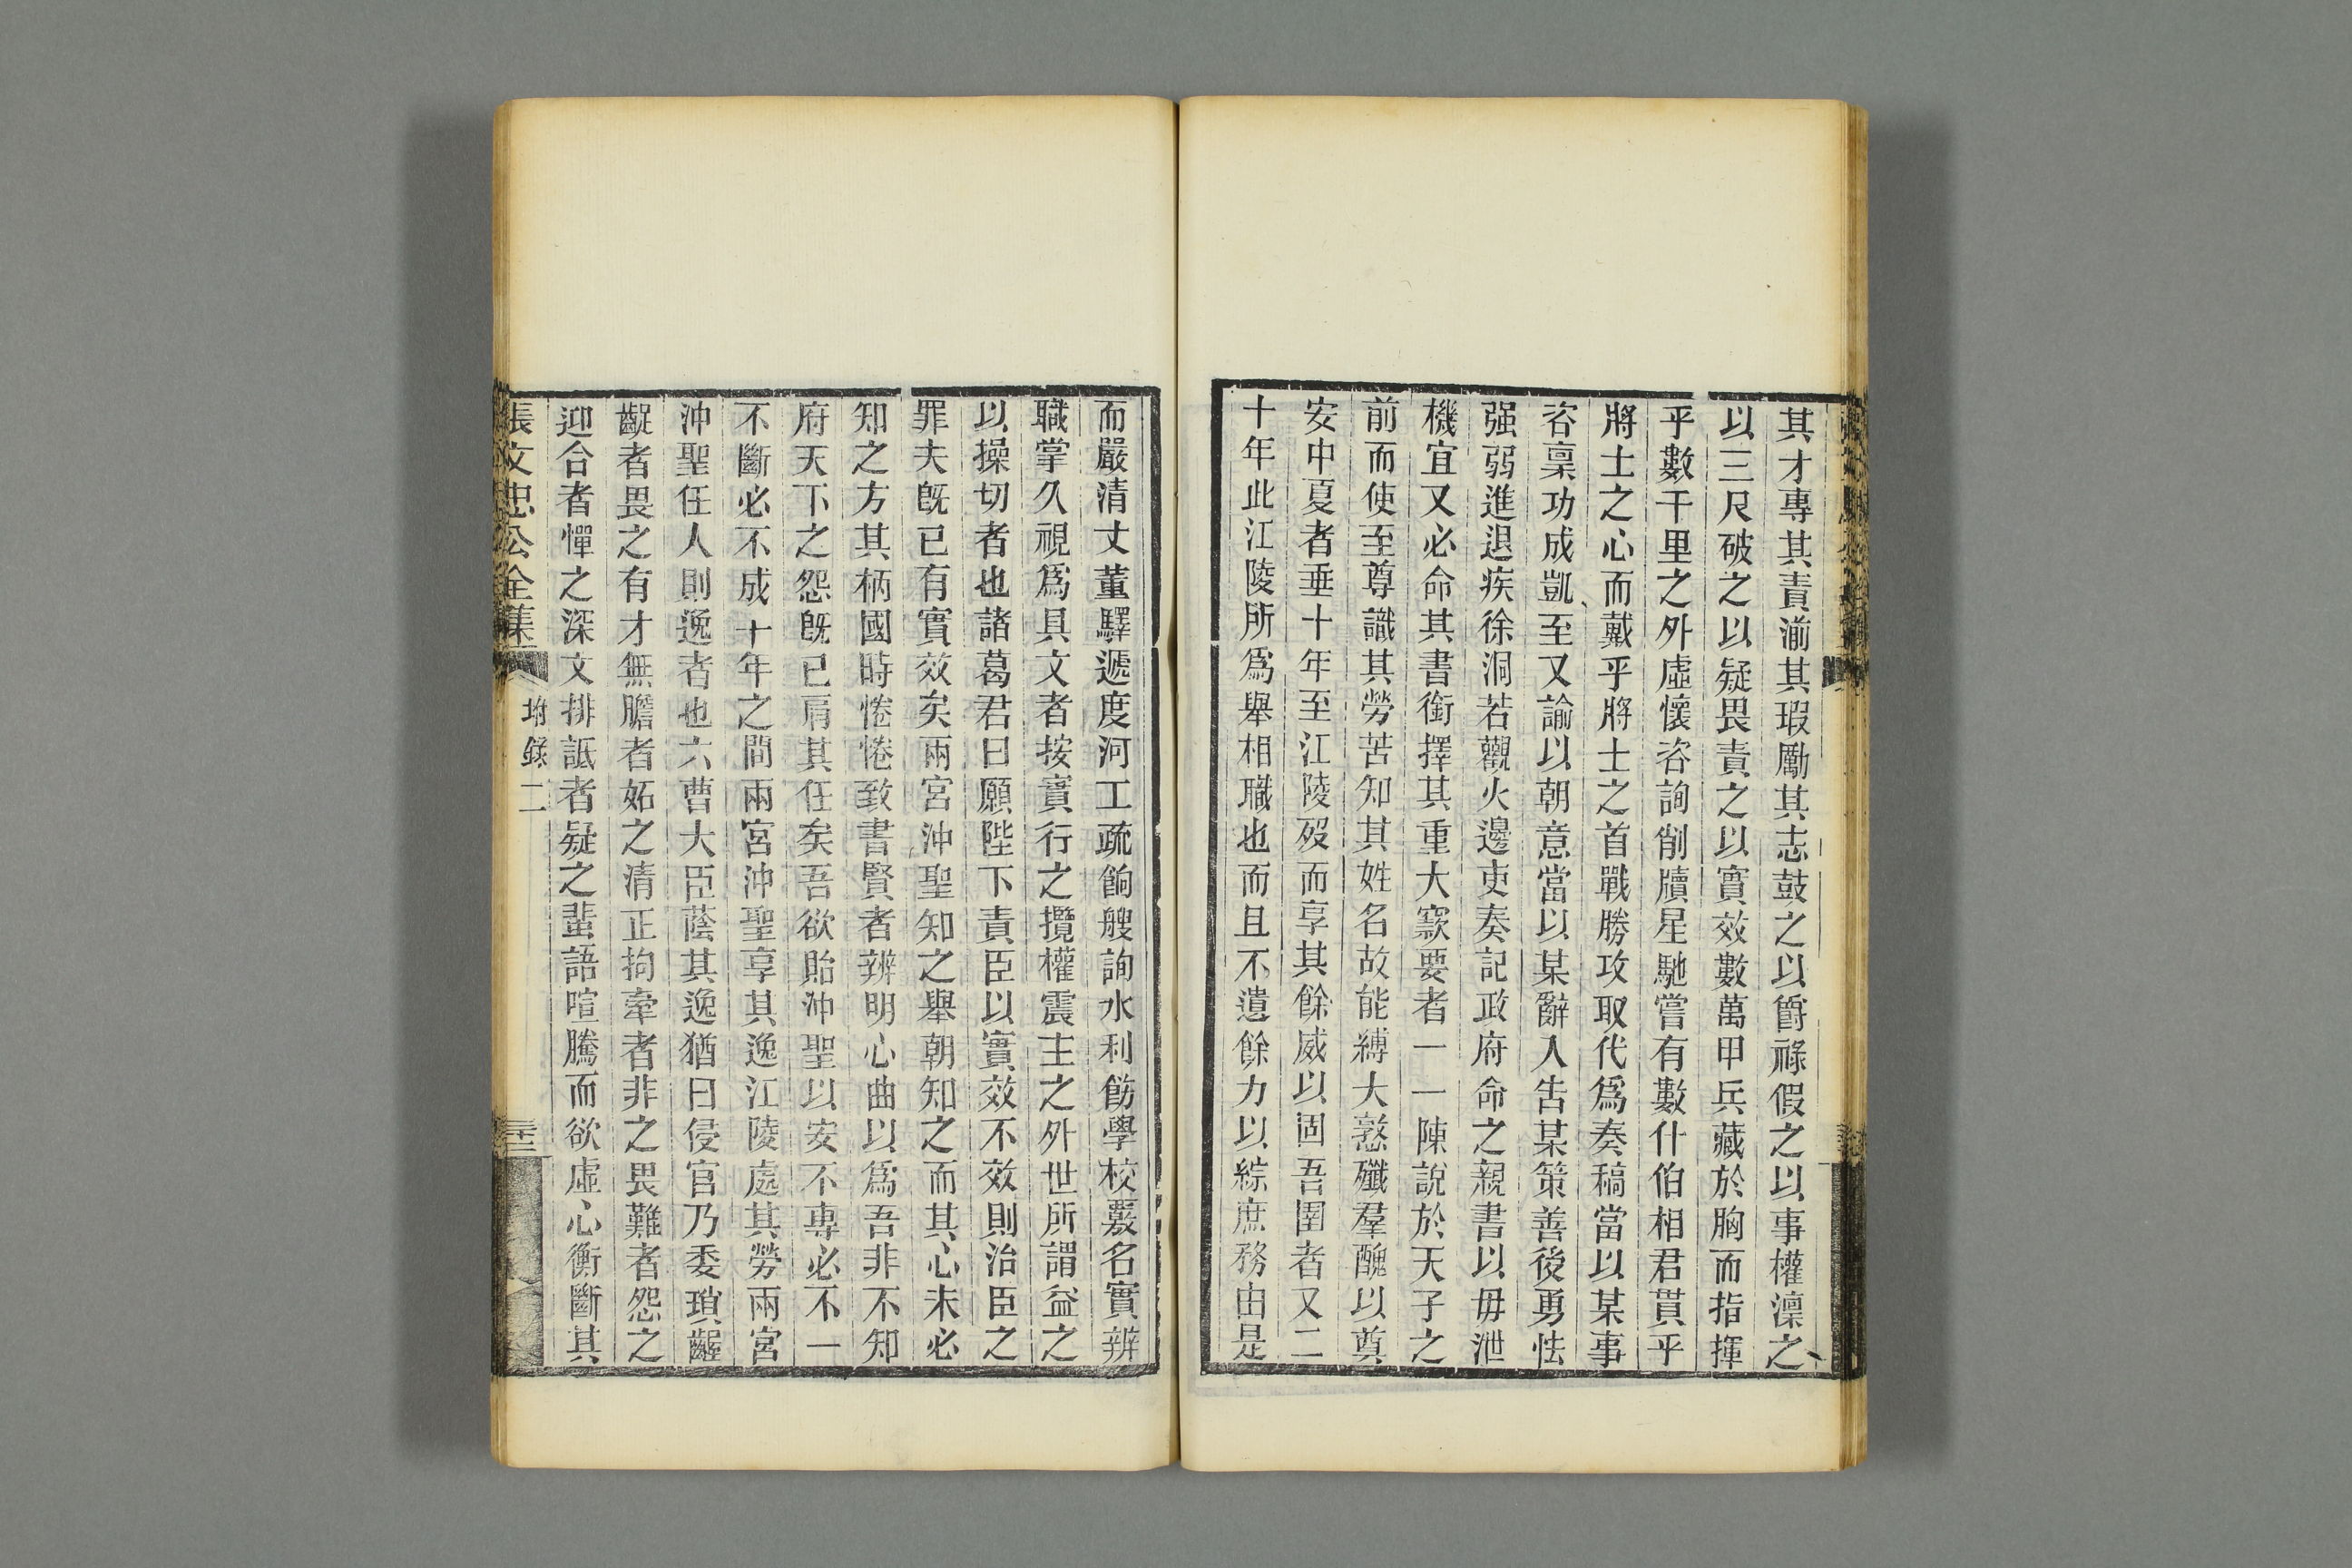 其才專其責湔其瑕勵其志鼓之以爵祿假之以事權凜之
以三尺破之以疑畏責之以實效數萬甲兵藏於胸而指揮
乎數千里之外虛懷咨詢削牘星馳嘗有數什伯相君貫乎
將士之心而戴乎將士之首戰勝攻取代爲奏稿當以某事
咨稟功成凱至又諭以朝意當以某辭入告某策善後勇怯
强弱進退疾徐洞若觀火邊吏奏記政府命之親書以毋泄
機宜又必命其書銜擇其重大窾要者一一陳說於天子之
前而使至尊識其勞苦知其姓名故能縛大憝殲羣醜以奠
安中夏者垂十年至江陵歿而享其餘威以固吾圉者又二
十年此江陵所爲舉相職也而且不遺餘力以綜庶務由是
而嚴清丈董驛遞度河工疏餉艘詢水利飭學校覈名實辨
職掌久視爲具文者按實行之攬權震主之外世所謂益之
以操切者也諸葛君曰願陛下責臣以實效不效則治臣之
罪夫旣已有實效矣兩宮沖聖知之舉朝知之而其心未必
知之方其柄國時惓惓致書賢者辨明心曲以爲吾非不知
府天下之怨旣已肩其任矣吾欲貽沖聖以安不專必不一
不斷必不成十年之間兩宮沖聖享其逸江陵處其勞兩宮
沖聖任人則逸者也六曹大臣蔭其逸猶曰侵官乃委瑣齷
齪者畏之有才無膽者妬之清正拘牽者非之畏難者怨之
迎合者憚之深文排詆者疑之蜚語喧騰而欲虛心衡斷其
張文忠公全集 附錄二